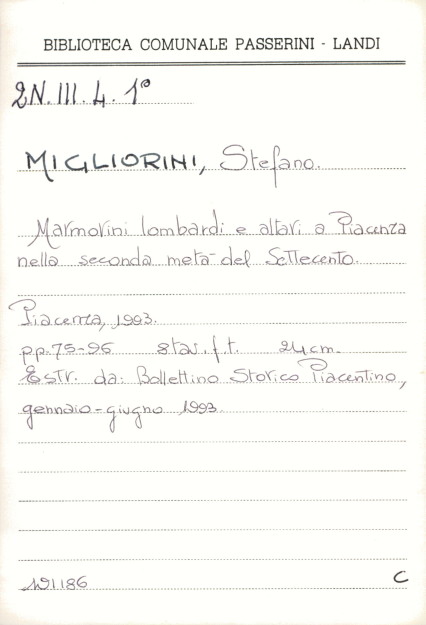 BIBLIOTECA COMUNALE PASSERINI - LANDI
2N. III. 4. 1°
MIGLIORINI, Stefano.
Marmorini lombardi e altari a Piacenza
nella seconda metà del Settecento.
Piacenza, 1993.
pp. 75-96 8 tav. f. t. 24 cm.
Estr. da: Bollettino Storico Piacentino,
gennaio-giugno 1993.
C